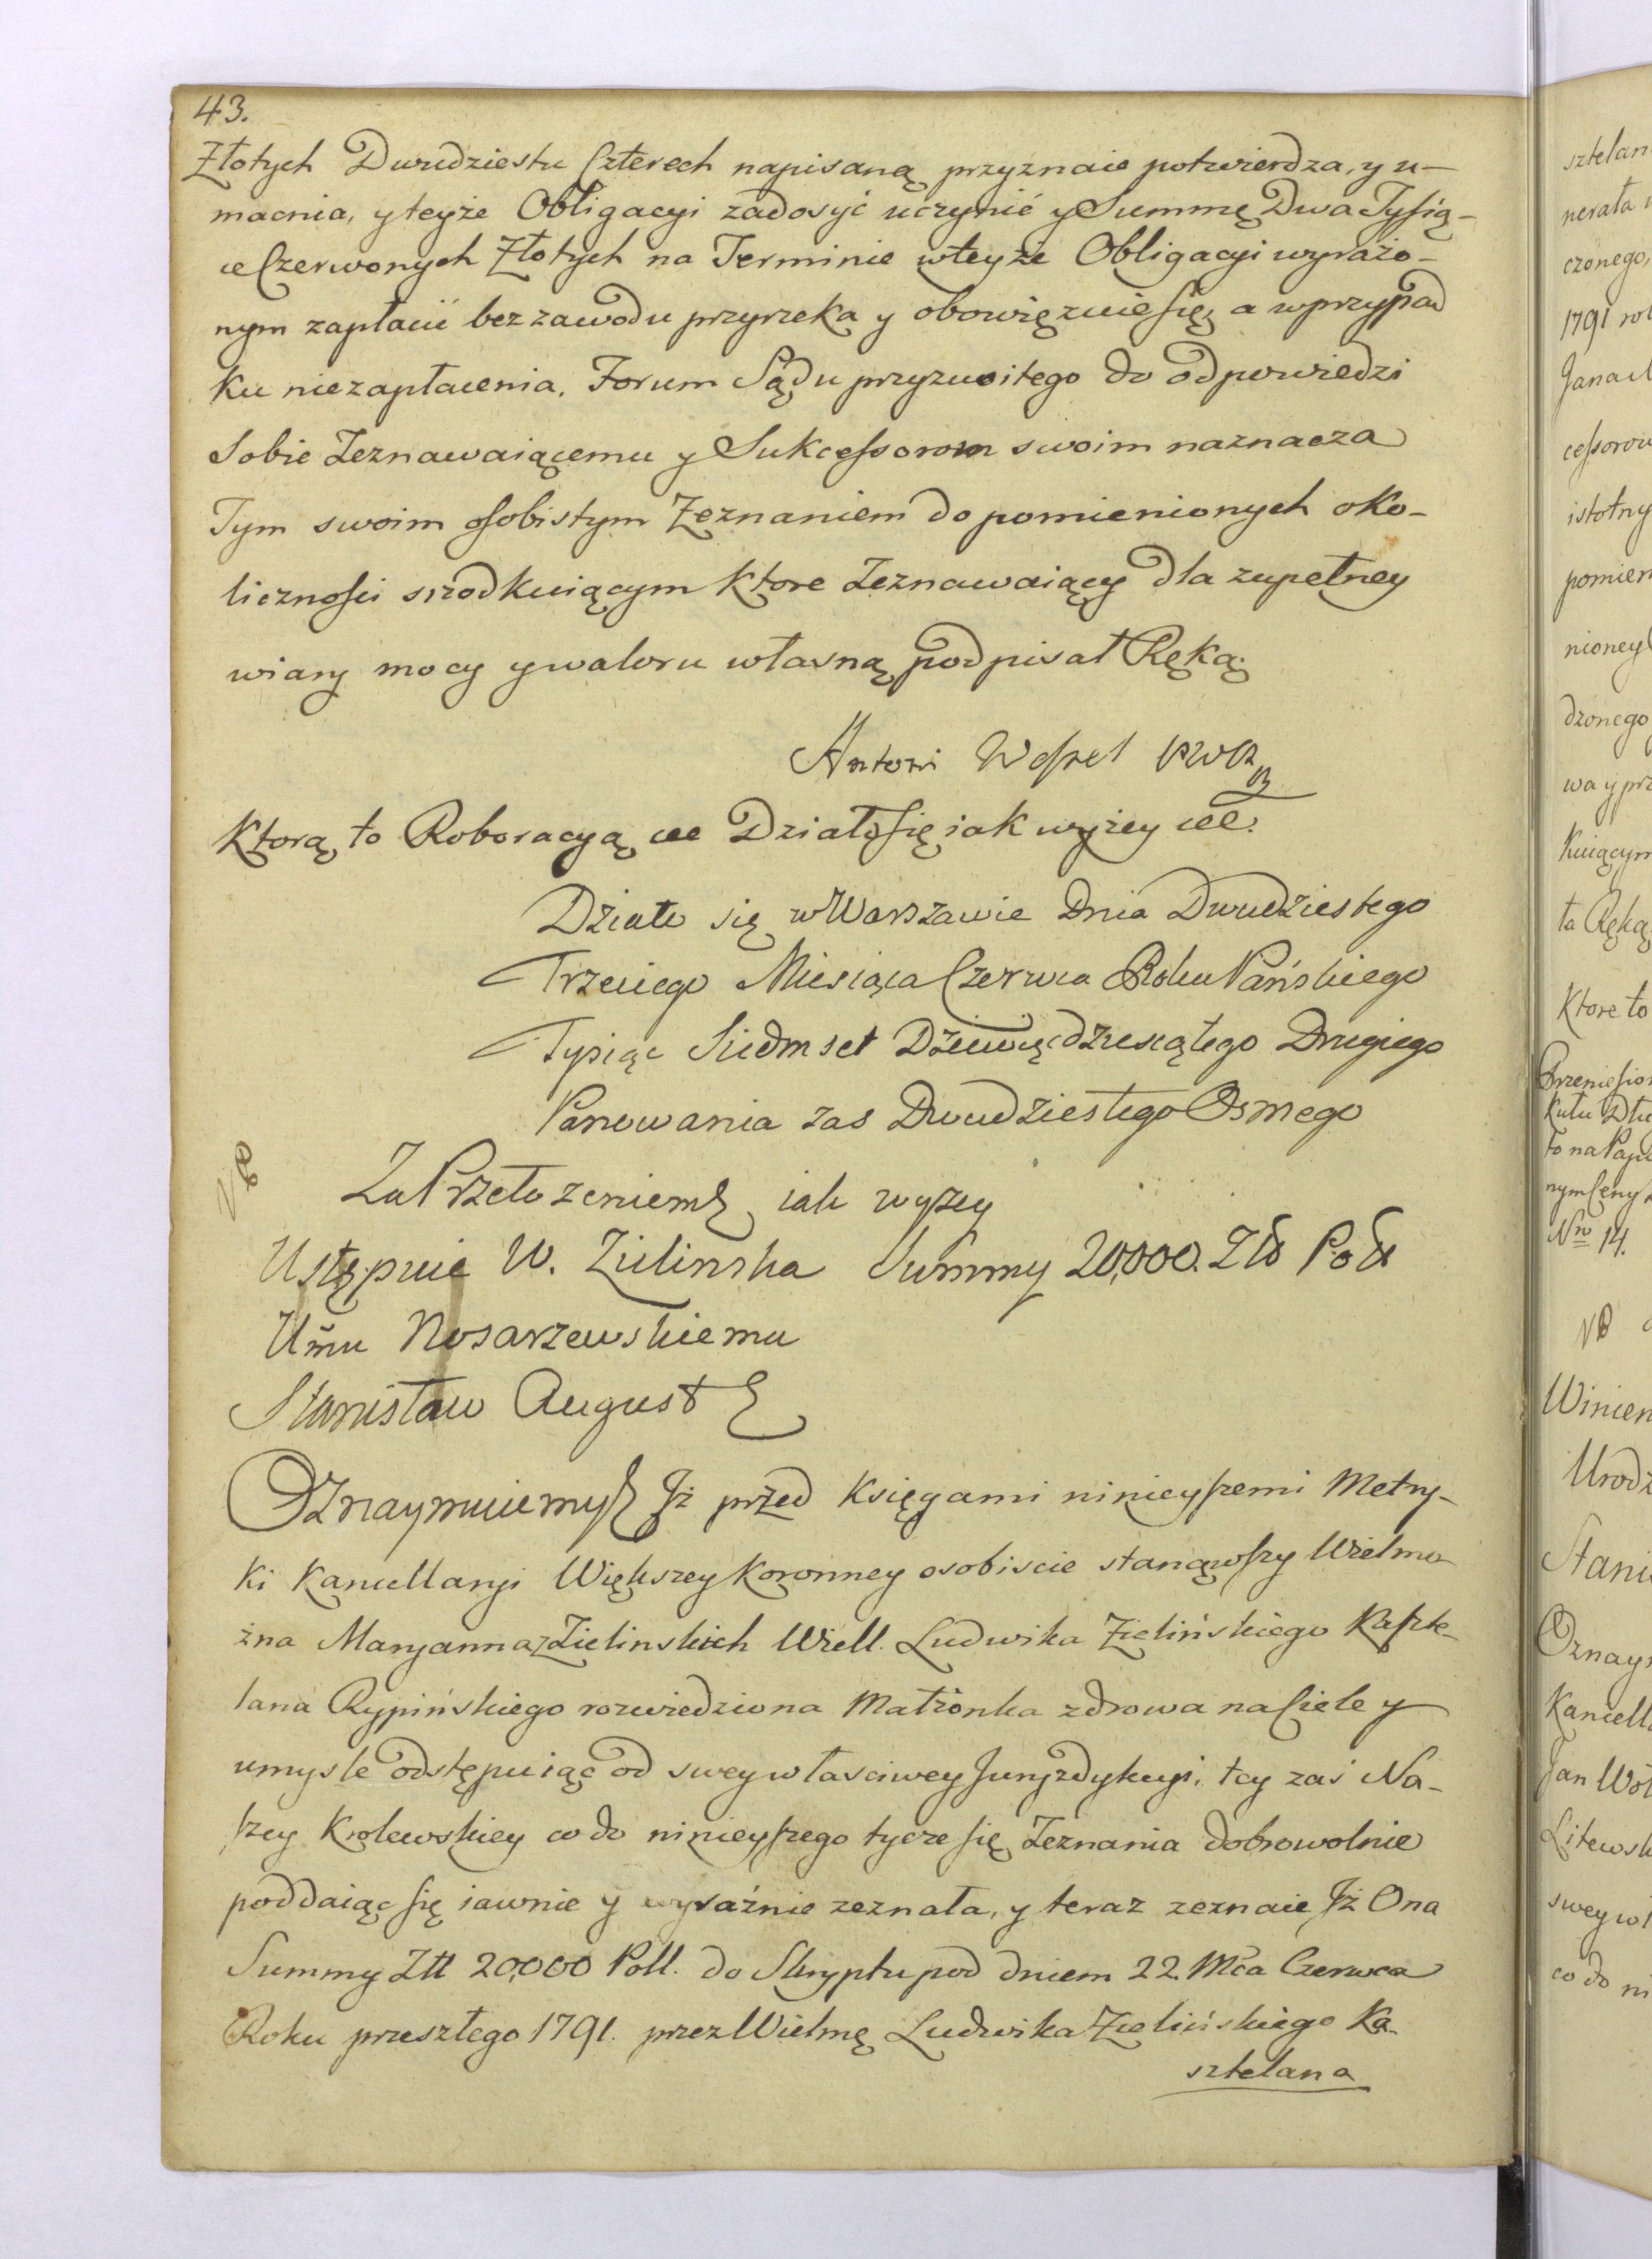 43.
Złotych Dwudziestu Czterech napisaną przyznaie potwierdza, y u-
macnia, y teyże Obligacyi zadosyć uczynić y Summę Dwa Tysią-
ce Czerwonych Złotych na Terminie wteyże Obligacyi wyrażo-
nym zapłacić bez zawodu przyrzeka y obowięzuie się, a wprzypad
ku niezapłacenia, Forum Sądu przyzwoitego do odpowiedzi
Sobie Zeznawaiącemu y Sukcessorom swoim naznacza
Tym swoim osobistym Zeznaniem do pomienionych oko-
liczności srzodkuiącym ktore Zeznawaiący dla zupełney
wiary mocy y waloru własną podpisał Ręką.
Antoni Wessel
Ktorą to Roboracyą etc Działo się iak wyżey etc.
Działo się w Warszawie Dnia Dwudziestego
Trzeciego Miesiąca Czerwca Roku Pańskiego
Tysiąc Siedmset Dziewięćdziesiątego Drugiego
Panowania zas Dwudziestego Osmego
NB
Za Przełożeniem iak wyżey
Ustępuie W. Zielinska Summy 20,000. Zło Pol
Urmu Nosarzewskiemu
Stanisław August
Oznaymuiemy Iż przed Księgami ninieyszemi Metry-
ki Kancellaryi Większey Koronney osobiscie stanąwszy Wielmo-
żna Maryanna z Zielinskich Wiell. Ludwika Zielińskiego Kaszte-
lana Rypińskiego rozwiedziona Małżonka zdrowa na Ciele y
umysle odstępuiąc od swey własciwey Juryzdykcyi, tey zaś Na-
szey Krolewskiey co do ninieyszego tycze się Zeznania dobrowolnie
poddaiąc się iawnie y wyraźnie zeznała, y teraz zeznaie Iż Ona
Summy Ztt 20,000 Poll. do Skryptu pod dniem 22. Mca Czerwca
Roku przeszłego 1791. przez Wielmę Ludwika Zielińskiego Ka-
sztelana